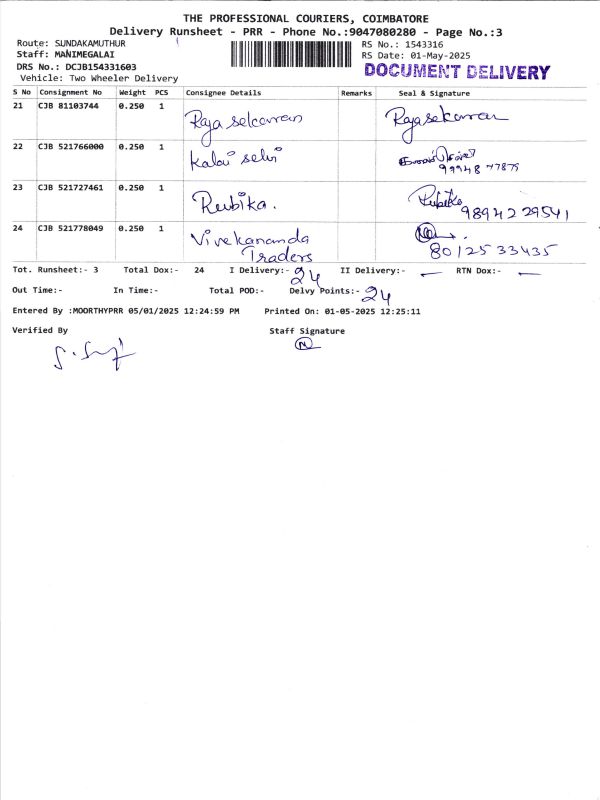 THE PROFESSIONAL COURIERS, COIMBATORE
Delivery Runsheet - PRR - Phone No.:9047080280 - Page No.:3
Route: SUNDAKAMUTHUR RS No.: 1543316
Staff: MANIMEGALAI RS Date: 01-May-2025
DRS No.: DCJB154331603 DOCUMENT DELIVERY
Vehicle: Two Wheeler Delivery
S No Consignment No Weight PCS Consignee Details Remarks Seal & Signature
21 CJB 81103744 0.250 1 Rajasekaran Rajasekaran
22 CJB 521766000 0.250 1 Kalai selvi
99948 77875
23 CJB 521727461 0.250 1 Rubika. Rubika
9894229541
24 CJB 521778049 0.250 1 Vivekananda
Traders 8012533435
Tot. Runsheet:- 3 Total Dox:- 24 I Delivery:- 24 II Delivery:- — RTN Dox:- —
Out Time:- In Time:- Total POD:- Delvy Points:- 24
Entered By :MOORTHYPRR 05/01/2025 12:24:59 PM Printed On: 01-05-2025 12:25:11
Verified By Staff Signature